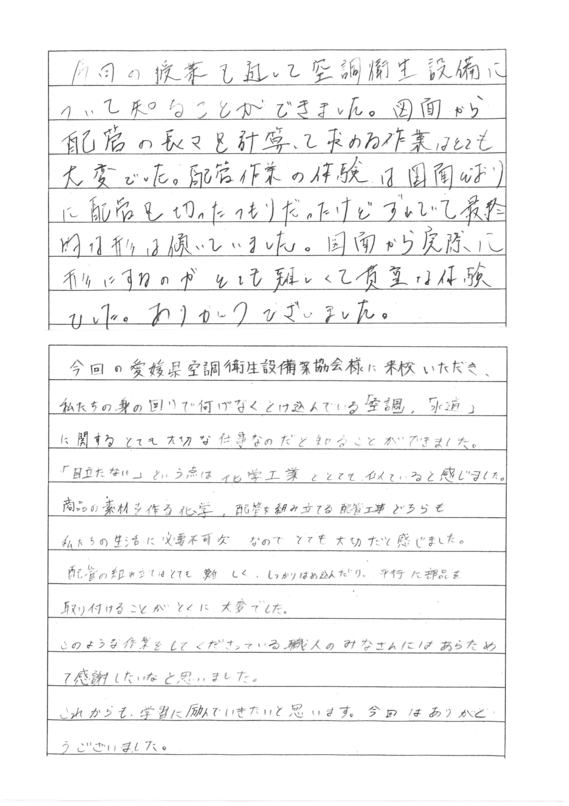 今回の授業を通して空調衛生設備に
ついて知ることができました。図面から
配管の長さを計算して求める作業はとても
大変でした。配管作業の体験は図面どおり
に配管を切ったつもりだったけどずれていて最終
的な形は傾いていました。図面から実際に
形にするのがとても難しくて貴重な体験
でした。ありがとうございました。
今回の愛媛県空調衛生設備業協会様に来校いただき、
私たちの身の回りで何げなくとけ込んでいる「空調」「水道」
に関するとても大切な仕事なのだと知ることができました。
「目立たない」という点は化学工業ととても似ていると感じました。
商品の素材を作る化学、配管を組み立てる配管工事どちらも
私たちの生活に必要不可欠なのでとても大切だと感じました。
配管の組み立てはとても難しく、しっかりはめ込んだり、平行に部品を
取り付けることがとくに大変でした。
このような作業をしてくださっている職人のみなさんにはあらため
て感謝したいなと思いました。
これからも、学習に励んでいきたいと思います。今回はありがと
うございました。